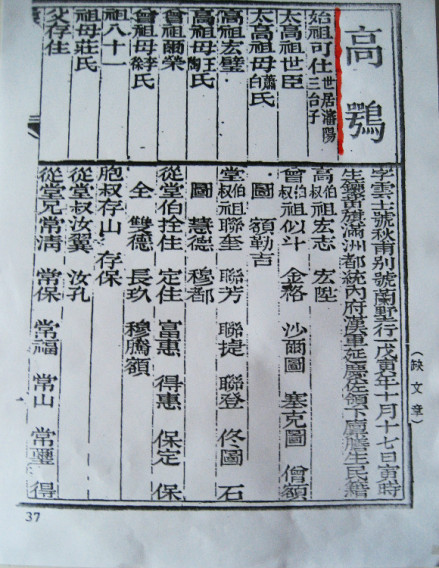 高鶚
始祖可仕世居瀋陽三台子
太高祖世臣
太高祖母蕭白氏
高祖宏璧
高祖母王陶氏
曾祖爾榮
曾祖母李氏
祖八十一
祖母莊氏
父存住
（缺文章）
字雲士號秋甫別號蘭墅行一戊寅年十月十七日寅時
生鑲黃旗滿洲都統內府漢軍延慶佐領下廩膳生民籍
高伯叔祖宏志 宏陞
曾伯叔祖似斗 金格 沙爾圖 塞克圖 僧額
圖 額勒吉
堂伯叔祖聯奎 聯芳 聯捷 聯登 佟圖 石
圖 慧德 穆都
從堂伯拴住 定住 富惠 得惠 保定 保
全 雙德 長玖 穆騰額
胞叔存山 存保
從堂叔汝翼 汝孔
從堂兄常清 常保 常福 常山 常璽 得
37